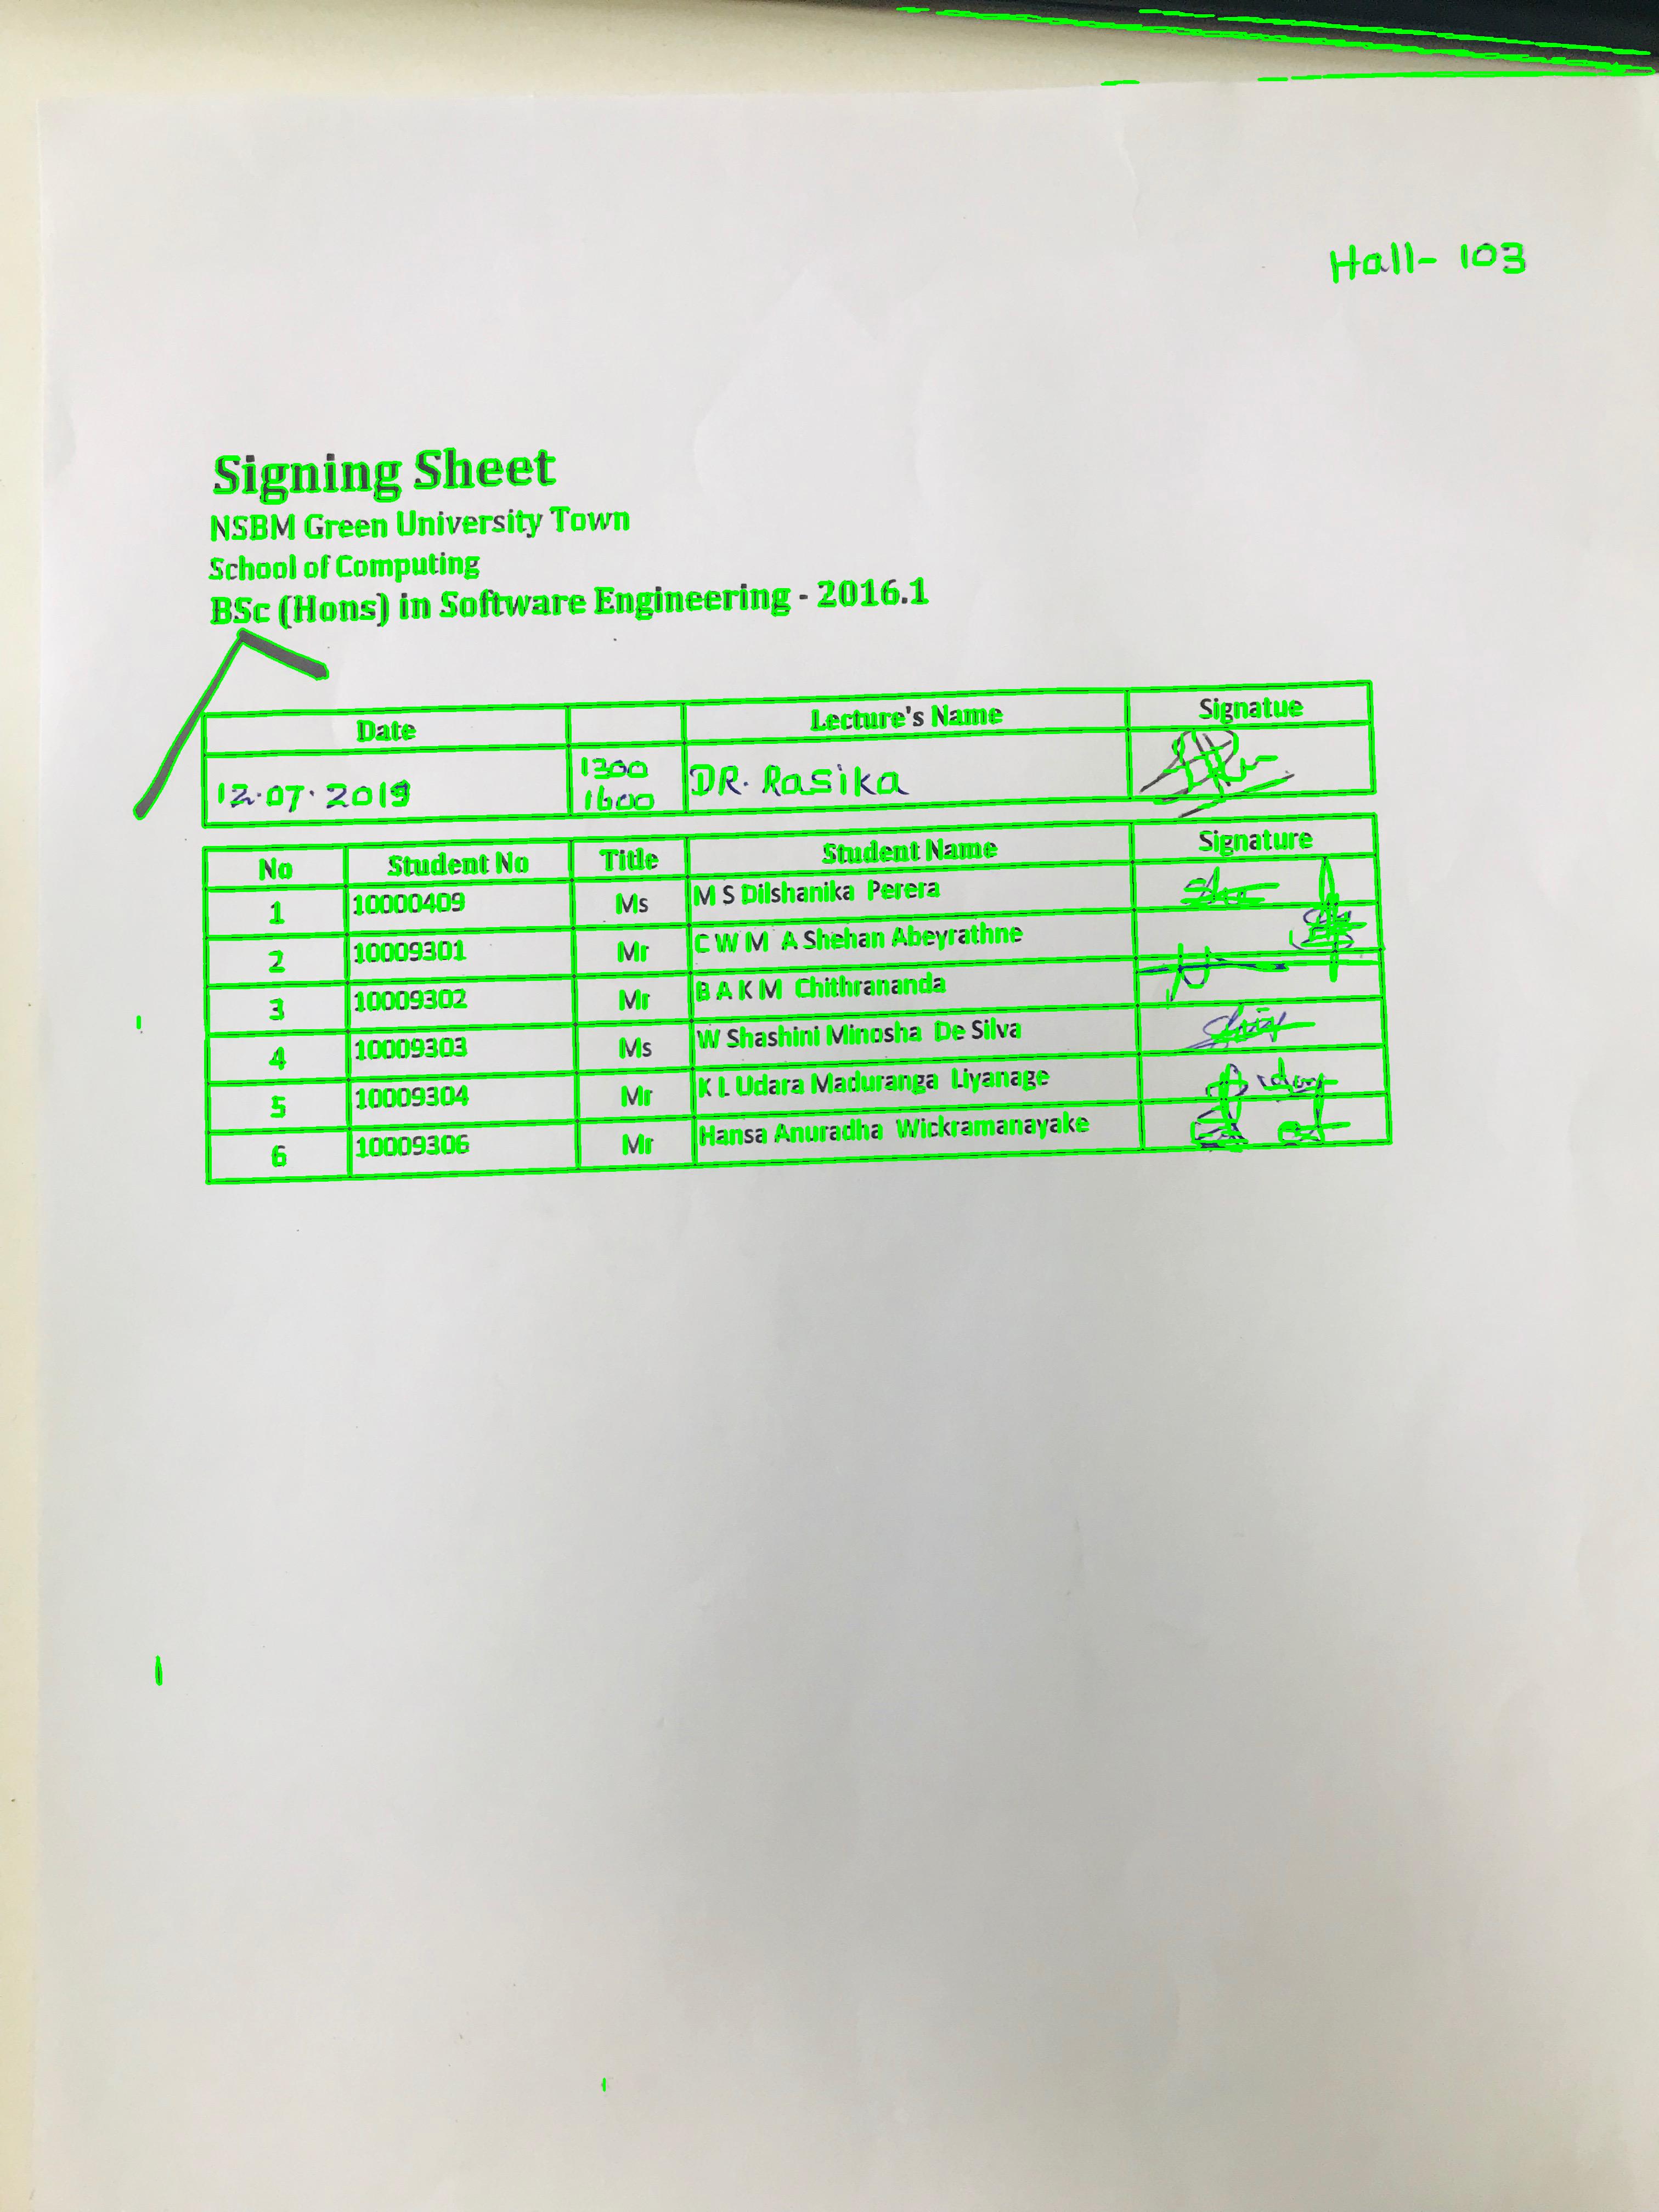 Hall- 103
Signing Sheet
NSBM Green University Town
School of Computing
BSc (Hons) in Software Engineering - 2016.1
Date Lecture's Name Signatue
12.07.2019 1300 1600 DR. Rasika
No Student No Title Student Name Signature
1 10000409 Ms M S Dilshanika Perera
2 10009301 Mr C W M A Shehan Abeyrathne
3 10009302 Mr B A K M Chithrananda
4 10009303 Ms W Shashini Minosha De Silva
5 10009304 Mr K L Udara Maduranga Liyanage
6 10009306 Mr Hansa Anuradha Wickramanayake